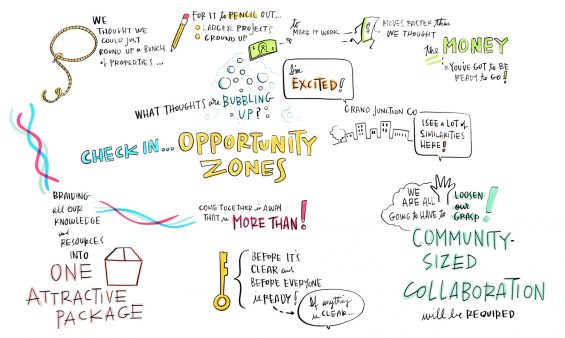 WE
THOUGHT WE
COULD JUST
ROUND UP A BUNCH
of PROPERTIES...
FOR IT to PENCIL OUT...
LARGER PROJECTS
GROUND UP
to
MAKE IT WORK
$
MOVES FASTER than
WE THOUGHT
the MONEY
YOU'VE GOT to BE
READY to GO!
I'm
EXCITED!
WHAT THOUGHTS are BUBBLING
UP?
GRAND JUNCTION CO
I SEE A LOT of
SIMILARITIES
HERE!
CHECK IN... OPPORTUNITY
ZONES
BRAIDING
all OUR
KNOWLEDGE
and
RESOURCES
INTO
ONE
ATTRACTIVE
PACKAGE
COME TOGETHER in A WAY
THAT is MORE THAN!
BEFORE IT'S
CLEAR and
BEFORE EVERYONE
is READY!
If anything
is CLEAR...
WE
ARE ALL
GOING to HAVE to
LOOSEN
our
GRASP!
COMMUNITY-
SIZED
COLLABORATION
will be REQUIRED